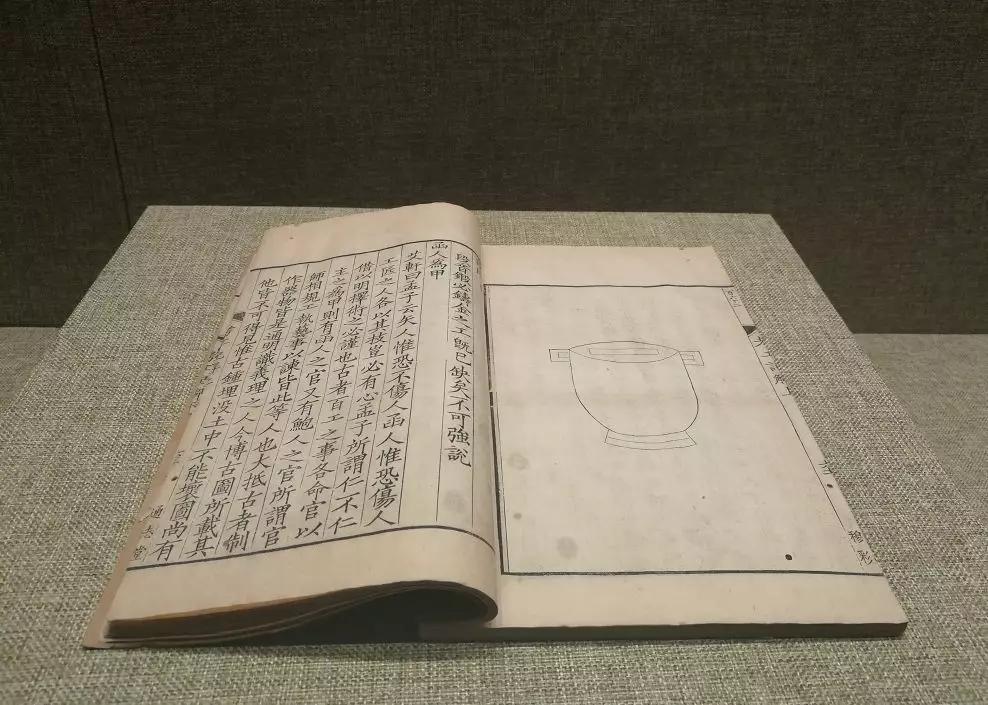 段官鍜必鑄金之工既已缺矣不可強説
函人為甲
艾軒曰孟子云矢人惟恐不傷人函人惟恐傷人
工匠之人各以其技豈必有心孟子所謂仁不仁
借以明擇術之必謹也古者百工之事各命官以
主之為甲則有函人之官又有鮑人之官所謂官
師相規工執藝事以諫皆此等人也大抵古者制
作器物皆是通明識義理之人今博古圖所載其
他皆不可得見惟古鍾埋没土中不能壞圖尚有
通志堂
穆彩